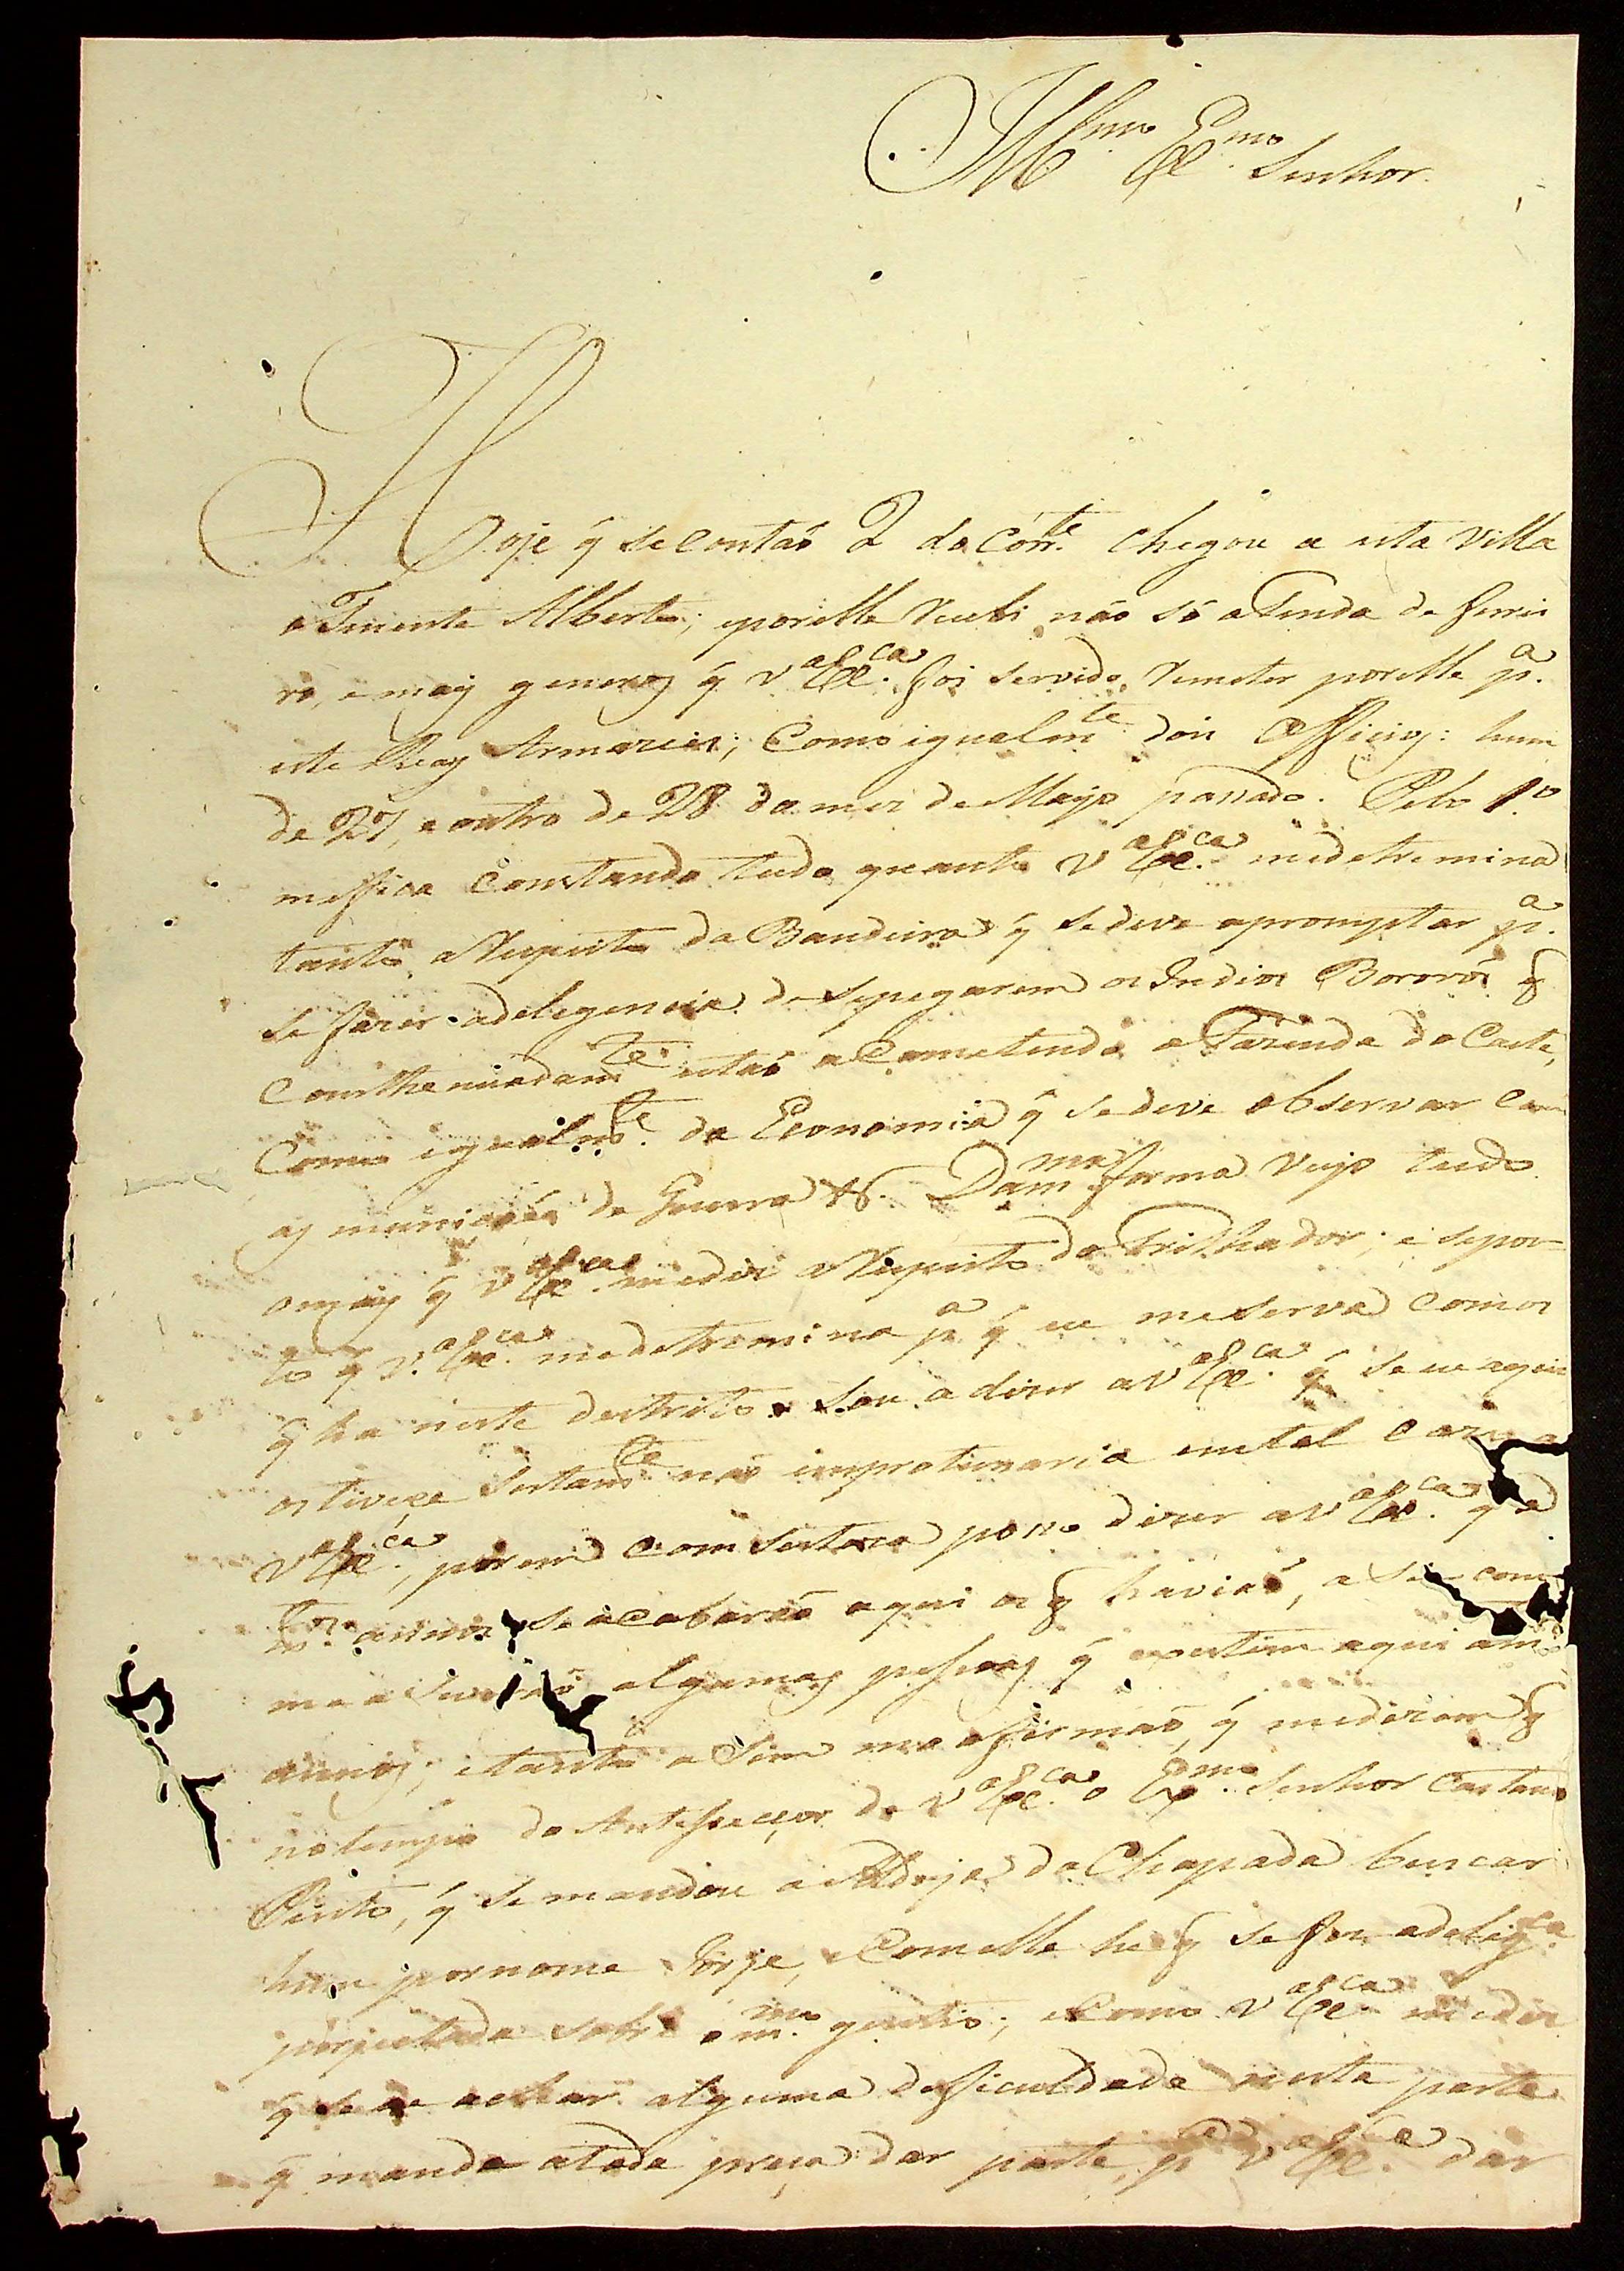 Illmo Exmo Senhor
Hoje q̃ se contaõ 2 do corr.te chegou a esta Villa
o Tenente Alberto; eporelle recebi não só aTenda de ferrei
ro, e mais generos q̃ V.a Ex.ca foi servido remeter porelle p.a
este Reaes Armazeis; como igualm.te dois Officios: hum
de 27, e outro de 28 do mez de Mayo passado. Pelo 1.o
mefica constando tudo quanto V.a Ex.ca medetremina
tanto aRespeito da Bandeira q̃ sedeve apromptar p.a
se fazer adelegencia de sepegarem os Indios Bororós q̃
Comthenuadam.te estaõ acometendo aFazenda do Caeté,
Como igualm.te da Economia q̃ sedeve observar com
as municoẽs de Guerra &. Dam.ma forma vejo tudo
omais q̃ V.a Ex.ca mediz aRespeito do Trilhador; e supos
to q̃ V.a Ex.ca medetremina p.a q̃ eu meserva comos
q̃ ha neste destrito. Sou adizer aV.a Ex.ca q̃ se eu aqui
ostivece sertam.te naõ inprotunaria emtal cazo a
V.a Ex.ca, porem com serteza posso dizer aV.a Ex.ca q̃ a
annos se acabaraõ aqui os q̃ haviaõ, a sim como
me a algumas pessoas q̃ existem aqui am.tos
annos; etanto aSim me afirmaõ, q̃ medizem q̃
notempo do Antessecçor de V.a Ex.ca o Ex.mo Senhor Caetano
Pinto, q̃ semandou aAldeja da Chapada buscar
hum pornome Jorje, e Comelle he q̃ se fez adelig.ca
porjectada sobre om.mo gentio; eComo V.a Ex.ca mediz
q̃ se eu achar alguma deficuldade nesta parte
q̃ manda atoda preça dar parte, p.a V.a Ex.ca dar